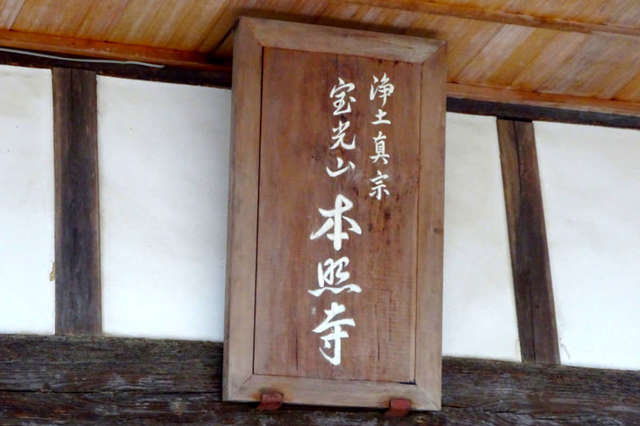 浄土真宗
宝光山
本照寺